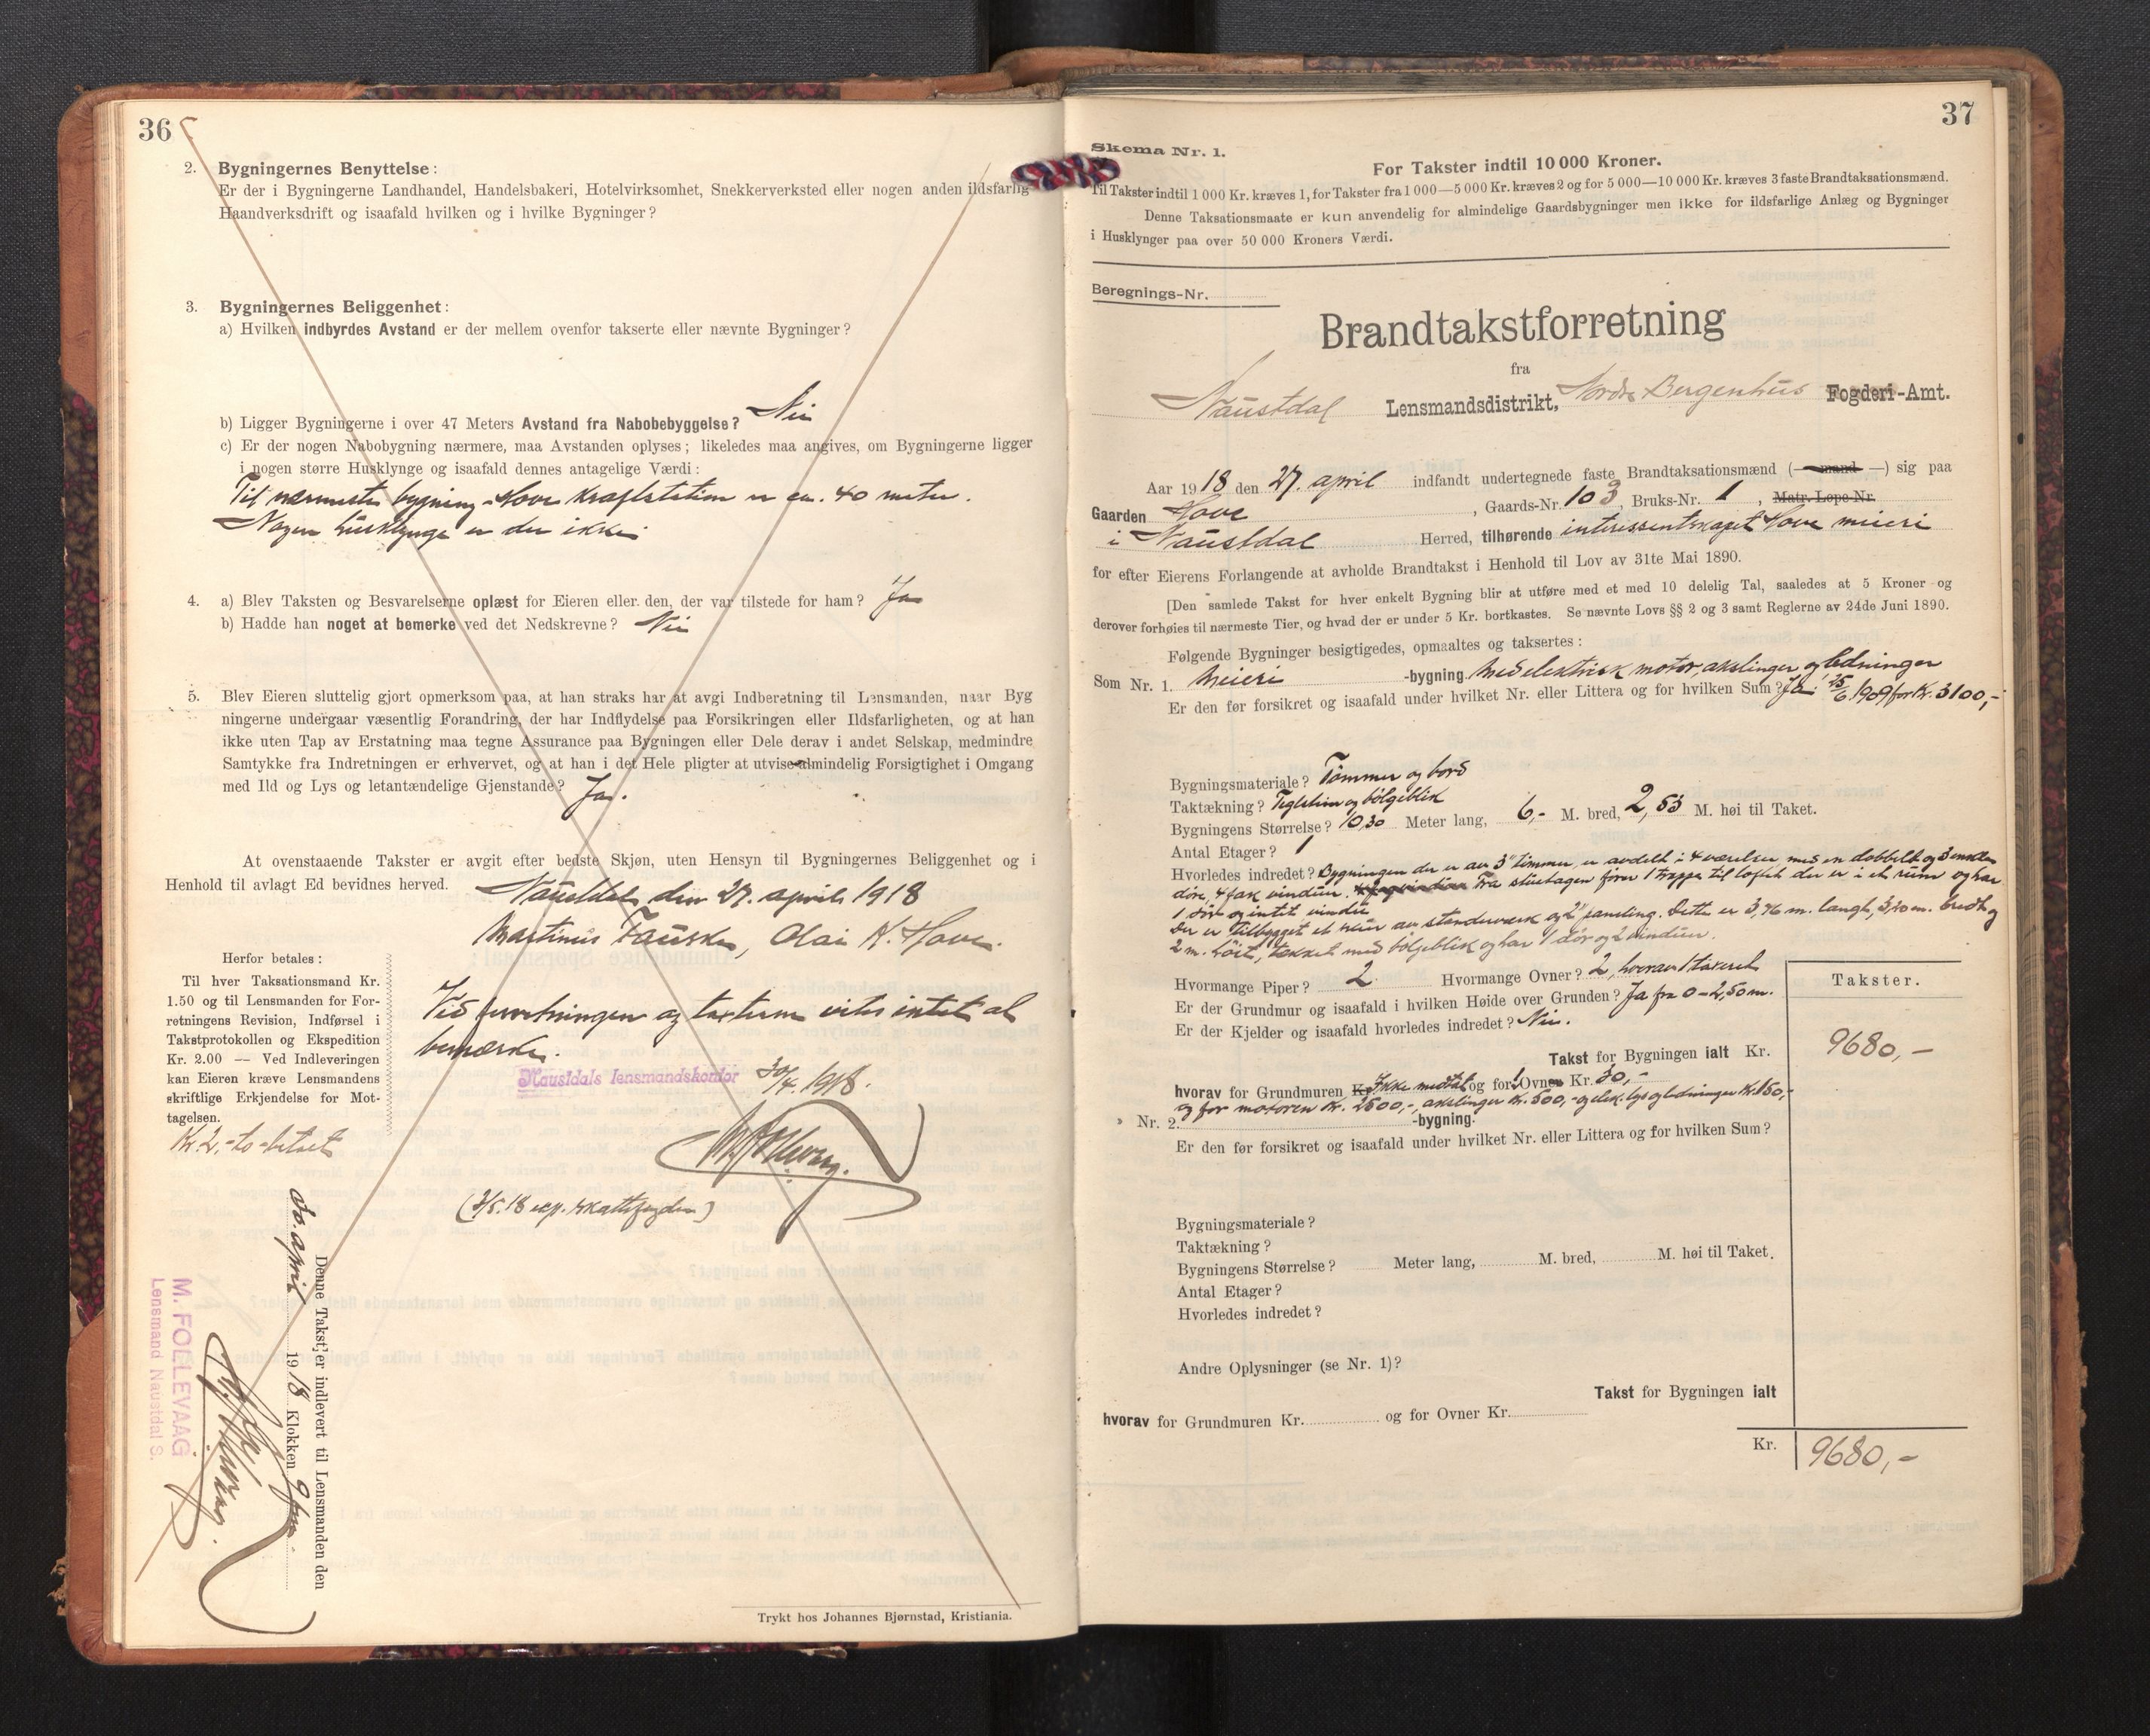 36
2. Bygningernes Benyttelse:
Er der i Bygningerne Landhandel, Handelsbakeri, Hotelvirksomhet, Snekkerverksted eller nogen anden ildsfarlig
Haandverksdrift og isaafald hvilken og i hvilke Bygninger?
3. Bygningernes Beliggenhet:
a) Hvilken indbyrdes Avstand er der mellem ovenfor takserte eller nævnte Bygninger?
b) Ligger Bygningerne i over 47 Meters Avstand fra Nabobebyggelse? Nei
c) Er der nogen Nabobygning nærmere, maa Avstanden oplyses; likeledes maa angives, om Bygningerne ligger
i nogen større Husklynge og isaafald dennes antagelige Værdi:
Til nærmeste bygning Hove Kraftstation er ca. 40 meter.
Nogen husklynge er der ikke.
4. a) Blev Taksten og Besvarelserne oplæst for Eieren eller den, der var tilstede for ham? Ja
b) Hadde han noget at bemerke ved det Nedskrevne? Nei
5. Blev Eieren sluttelig gjort opmerksom paa, at han straks har at avgi Indberetning til Lensmanden, naar Byg
ningerne undergaar væsentlig Forandring, der har Indflydelse paa Forsikringen eller Ildsfarligheten, og at han
ikke uten Tap av Erstatning maa tegne Assurance paa Bygningen eller Dele derav i andet Selskap, medmindre
Samtykke fra Indretningen er erhvervet, og at han i det Hele pligter at utvise almindelig Forsigtighet i Omgang
med Ild og Lys og letantændelige Gjenstande? Ja.
At ovenstaaende Takster er avgit efter bedste Skjøn, uten Hensyn til Bygningernes Beliggenhet og i
Henhold til avlagt Ed bevidnes herved.
Naustdal den 27. april 1918
Martinus Fauske, Olai K. Hove.
Herfor betales:
Til hver Taksationsmand Kr.
1.50 og til Lensmanden for For-
retningens Revision, Indførsel i
Takstprotokollen og Ekspedition
Kr. 2.00 — Ved Indleveringen
kan Eieren kræve Lensmandens
skriftlige Erkjendelse for Mot-
tagelsen.
Kr. 2,- to - betalt
Ved forretningen og taxterne vites intet at
bemærke.
Naustdals lensmandskontor 30/4. 1918.
(3/5.18 exp. skattefogden)
Denne Takst er indlevert til Lensmanden den
30. april 1918 Klokken 9 fm.
M. FOLLEVAAG
Lensmand Naustdal S.
Trykt hos Johannes Bjørnstad, Kristiania.
37
Skema Nr. 1.
For Takster indtil 10 000 Kroner.
Til Takster indtil 1 000 Kr. kræves 1, for Takster fra 1 000—5 000 Kr. kræves 2 og for 5 000—10 000 Kr. kræves 3 faste Brandtaksationsmænd.
Denne Taksationsmaate er kun anvendelig for almindelige Gaardsbygninger men ikke for ildsfarlige Anlæg og Bygninger
i Husklynger paa over 50 000 Kroners Værdi.
Beregnings-Nr.
Brandtakstforretning
fra
Naustdal Lensmandsdistrikt, Nordre Bergenhus Fogderi-Amt.
Aar 1918 den 27. april indfandt undertegnede faste Brandtaksationsmænd (— mand —) sig paa
Gaarden Hove, Gaards-Nr. 103, Bruks-Nr. 1, Matr. Løpe-Nr.
i Naustdal Herred, tilhørende interessentskapet Hove meieri
for efter Eierens Forlangende at avholde Brandtakst i Henhold til Lov av 31te Mai 1890.
[Den samlede Takst for hver enkelt Bygning blir at utføre med et med 10 delelig Tal, saaledes at 5 Kroner og
derover forhøies til nærmeste Tier, og hvad der er under 5 Kr. bortkastes. Se nævnte Lovs §§ 2 og 3 samt Reglerne av 24de Juni 1890.
Følgende Bygninger besigtigedes, opmaaltes og taksertes:
Som Nr. 1. Meieri -bygning. Med elektrisk motor, akslinger og ledninger
Er den før forsikret og isaafald under hvilket Nr. eller Littera og for hvilken Sum? Ja: 25/6 1909 for Kr. 3100,-
Bygningsmateriale? Tømmer og bord
Taktækning? Teglsten og bølgeblik
Bygningens Størrelse? 10,30 Meter lang, 6,- M. bred, 2,53 M. høi til Taket.
Antal Etager? 1
Hvorledes indredet? Bygningen der er av 3" tømmer, er avdelt i 4 værelser med en dobbelt og 3 enkelte
døre, 4 fak vinduer. Fra stuetagen fører 1 trappe til loftet der er i et rum og har
1 dør og intet vindu
Der er tilbygget et skur av standverk og 2" paneling. Dette er 3,76 m. langt, 3,20 m. bredt og
2 m. høit, tækket med bølgeblik og har 1 dør og 2 vinduer.
Hvormange Piper? 2. Hvormange Ovner? 2, hvorav 1 taxeret
Er der Grundmur og isaafald i hvilken Høide over Grunden? Ja fra 0-2,50 m.
Er der Kjelder og isaafald hvorledes indredet? Nei.
Takster.
Takst for Bygningen ialt Kr. 9680,-
hvorav for Grundmuren Kr. Ikke medtat og for 1 Ovner Kr. 30,-
og for motoren Kr. 2500,-, akslinger Kr. 500,- og elek. lys og ledninger Kr. 150,-
» Nr. 2. -bygning.
Er den før forsikret og isaafald under hvilket Nr. eller Littera og for hvilken Sum?
Bygningsmateriale?
Taktækning?
Bygningens Størrelse? Meter lang, M. bred, M. høi til Taket.
Antal Etager?
Hvorledes indredet?
Andre Oplysninger (se Nr. 1)?
Takst for Bygningen ialt
hvorav for Grundmuren Kr. og for Ovner Kr.
Kr. 9680,-